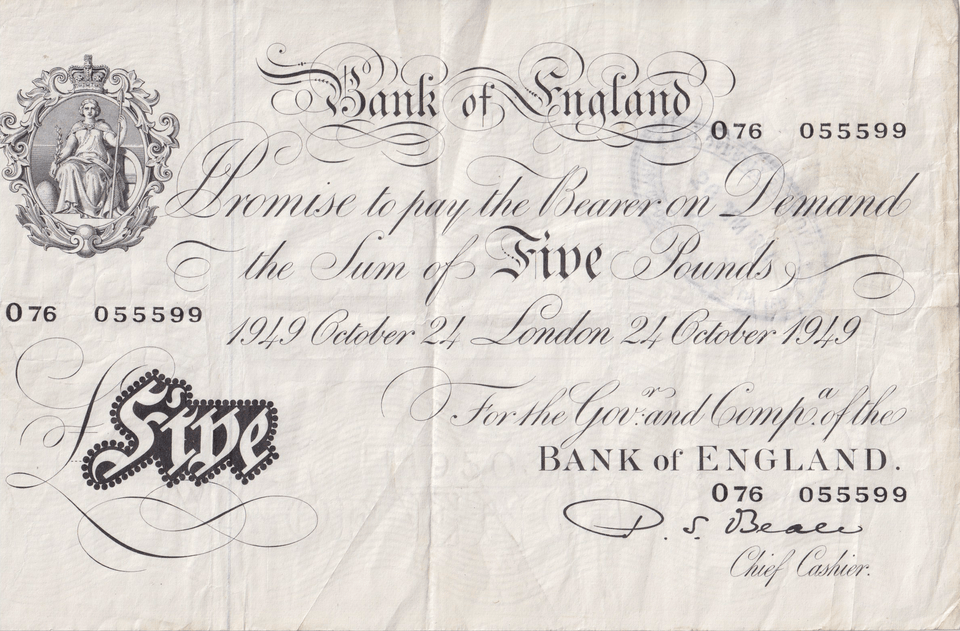 Bank of England
O76 055599
I Promise to pay the Bearer on Demand
the Sum of Five Pounds
O76 055599
1949 October 24 London 24 October 1949
£Five
For the Govr. and Compa. of the
BANK of ENGLAND.
O76 055599
P. S. Beale
Chief Cashier.